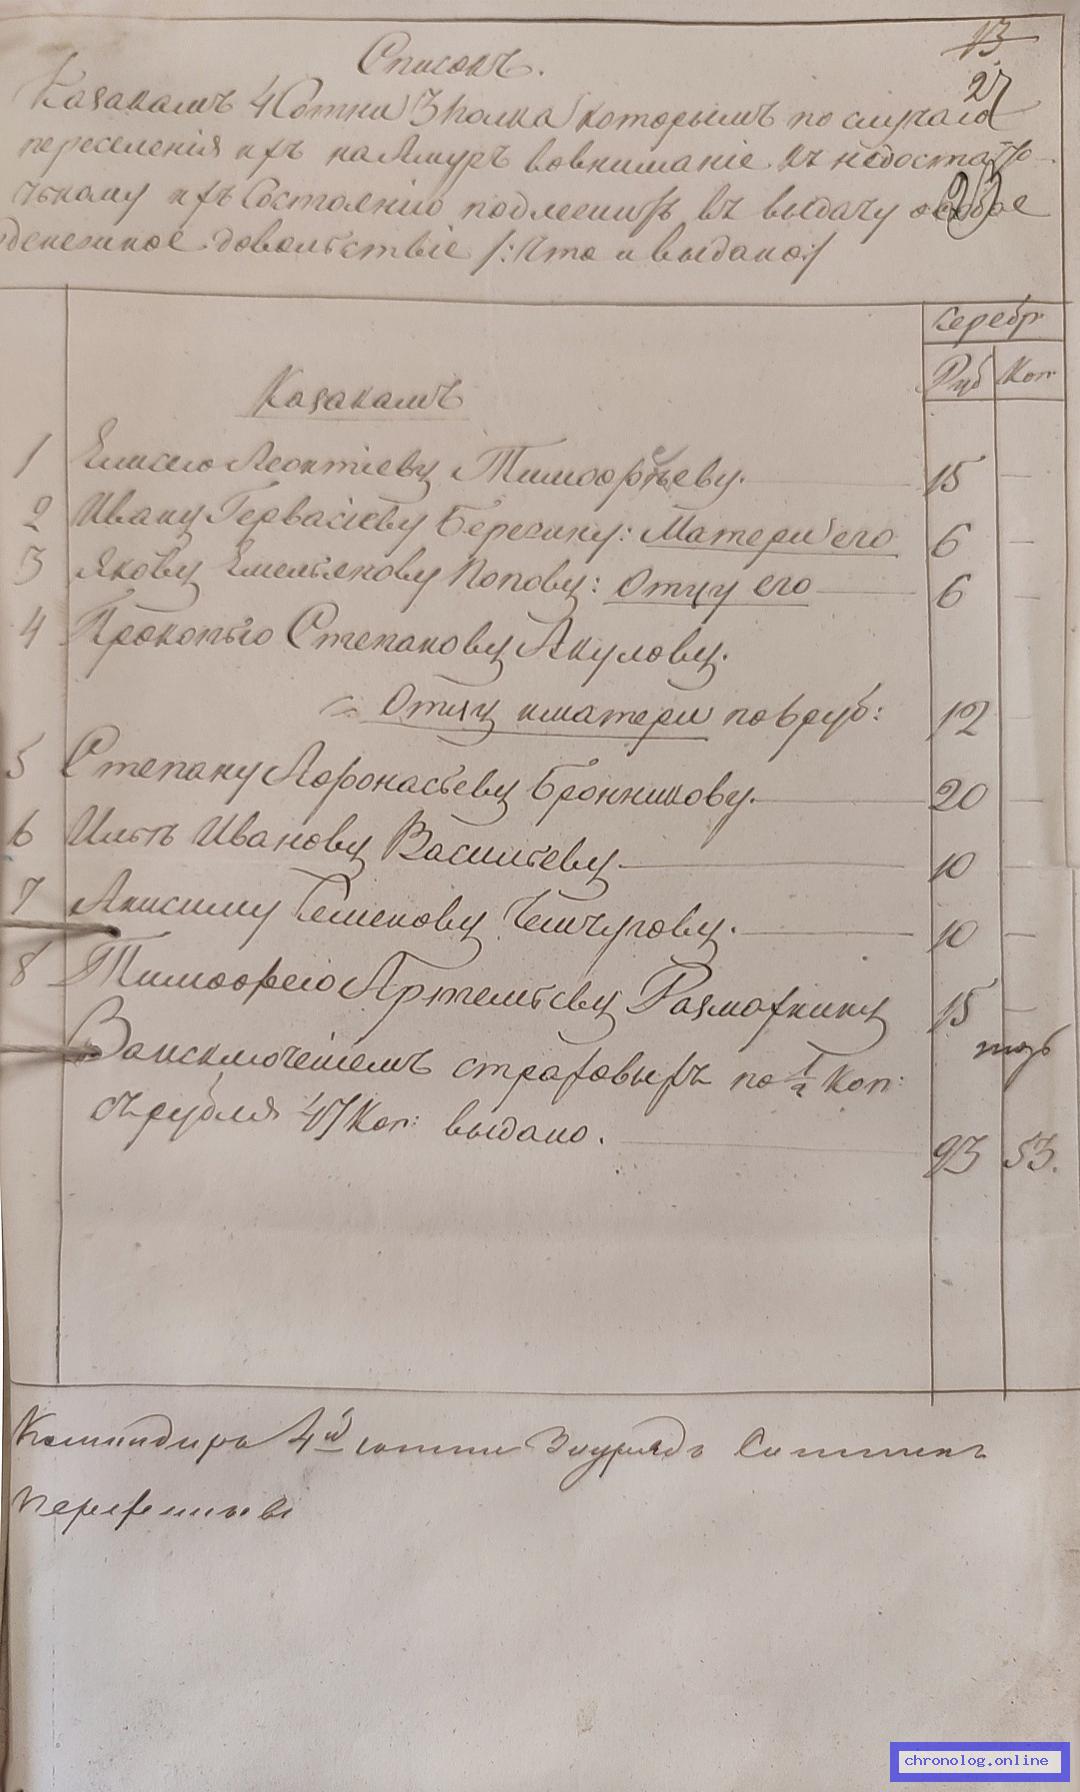 13
Списокъ.
27
Казакамъ 4 Сотни 3 полка которымъ по случаю
переселенія ихъ на Амуръ вовниманіе къ недостато-
чьному ихъ Состоянию подлежитъ въ выдачу особое
денежное довольствіе /: Что и выдано :/
Серебр
Руб Коп
Казакамъ
1 Елисею Леонтіеву Тимофѣеву. 15 —
2 Ивану Гервасіеву : Матери его 6 —
3 Якову Емельянову Попову: Отцу его 6 —
4 Прокопью Степанову Акулову.
Отцу и матери по 6 руб: 12 —
5 Степану Афонасьеву Бронникову. 20 —
6 Ильѣ Иванову Васильеву 10 —
7 Анисиму Семенову . 10 —
8 Тимофею Артемьеву Размахнину 15 —
Заисключеніемъ страховыхъ по 1/2 Коп:
съ рубля 47 Коп: выдано. 93 53.
Командиръ 4й сотни Зауряд Сотникъ